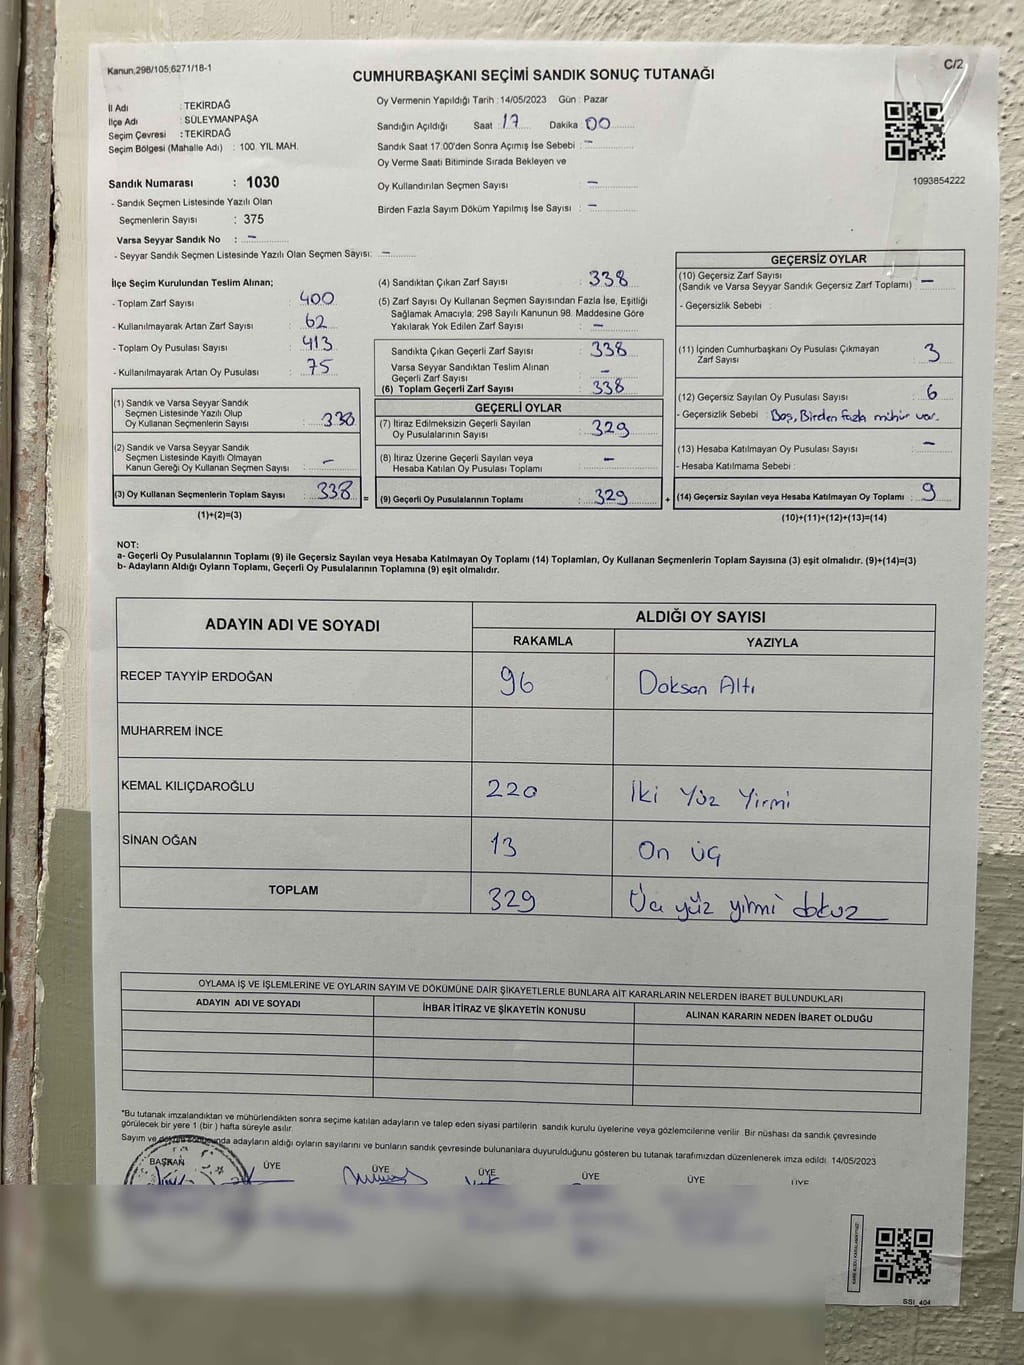 Kanun,298/105,6271/18-1
C/2
CUMHURBAŞKANI SEÇİMİ SANDIK SONUÇ TUTANAĞI
İl Adı : TEKİRDAĞ
İlçe Adı : SÜLEYMANPAŞA
Seçim Çevresi : TEKİRDAĞ
Seçim Bölgesi (Mahalle Adı) : 100. YIL MAH.
Oy Vermenin Yapıldığı Tarih : 14/05/2023 Gün : Pazar
Sandığın Açıldığı Saat 17 Dakika 00
Sandık Saat 17.00'den Sonra Açımış İse Sebebi : -
Oy Verme Saati Bitiminde Sırada Bekleyen ve
Oy Kullandırılan Seçmen Sayısı -
Birden Fazla Sayım Döküm Yapılmış İse Sayısı : -
1093854222
Sandık Numarası : 1030
- Sandık Seçmen Listesinde Yazılı Olan
Seçmenlerin Sayısı : 375
Varsa Seyyar Sandık No : -
- Seyyar Sandık Seçmen Listesinde Yazılı Olan Seçmen Sayısı: -
İlçe Seçim Kurulundan Teslim Alınan;
- Toplam Zarf Sayısı : 400
- Kullanılmayarak Artan Zarf Sayısı : 62
- Toplam Oy Pusulası Sayısı : 413
- Kullanılmayarak Artan Oy Pusulası : 75
(1) Sandık ve Varsa Seyyar Sandık
Seçmen Listesinde Yazılı Olup
Oy Kullanan Seçmenlerin Sayısı : 338
(2) Sandık ve Varsa Seyyar Sandık
Seçmen Listesinde Kayıtlı Olmayan
Kanun Gereği Oy Kullanan Seçmen Sayısı : -
(3) Oy Kullanan Seçmenlerin Toplam Sayısı : 338 =
(1)+(2)=(3)
(4) Sandıktan Çıkan Zarf Sayısı : 338
(5) Zarf Sayısı Oy Kullanan Seçmen Sayısından Fazla İse, Eşitliği
Sağlamak Amacıyla; 298 Sayılı Kanunun 98. Maddesine Göre
Yakılarak Yok Edilen Zarf Sayısı : -
Sandıkta Çıkan Geçerli Zarf Sayısı : 338
Varsa Seyyar Sandıktan Teslim Alınan
Geçerli Zarf Sayısı : -
(6) Toplam Geçerli Zarf Sayısı : 338
GEÇERLİ OYLAR
(7) İtiraz Edilmeksizin Geçerli Sayılan
Oy Pusulalarının Sayısı : 329
(8) İtiraz Üzerine Geçerli Sayılan veya
Hesaba Katılan Oy Pusulası Toplamı : -
(9) Geçerli Oy Pusulalarının Toplamı : 329 +
GEÇERSİZ OYLAR
(10) Geçersiz Zarf Sayısı
(Sandık ve Varsa Seyyar Sandık Geçersiz Zarf Toplamı) : -
- Geçersizlik Sebebi :
(11) İçinden Cumhurbaşkanı Oy Pusulası Çıkmayan
Zarf Sayısı : 3
(12) Geçersiz Sayılan Oy Pusulası Sayısı : 6
- Geçersizlik Sebebi : Boş, Birden fazla mühür var.
(13) Hesaba Katılmayan Oy Pusulası Sayısı : -
- Hesaba Katılmama Sebebi :
(14) Geçersiz Sayılan veya Hesaba Katılmayan Oy Toplamı : 9
(10)+(11)+(12)+(13)=(14)
NOT:
a- Geçerli Oy Pusulalarının Toplamı (9) ile Geçersiz Sayılan veya Hesaba Katılmayan Oy Toplamı (14) Toplamları, Oy Kullanan Seçmenlerin Toplam Sayısına (3) eşit olmalıdır. (9)+(14)=(3)
b- Adayların Aldığı Oyların Toplamı, Geçerli Oy Pusulalarının Toplamına (9) eşit olmalıdır.
ADAYIN ADI VE SOYADI
ALDIĞI OY SAYISI
RAKAMLA YAZIYLA
RECEP TAYYİP ERDOĞAN 96 Doksan Altı
MUHARREM İNCE
KEMAL KILIÇDAROĞLU 220 İki Yüz Yirmi
SİNAN OĞAN 13 On Üç
TOPLAM 329 Üç yüz yirmi dokuz
OYLAMA İŞ VE İŞLEMLERİNE VE OYLARIN SAYIM VE DÖKÜMÜNE DAİR ŞİKAYETLERLE BUNLARA AİT KARARLARIN NELERDEN İBARET BULUNDUKLARI
ADAYIN ADI VE SOYADI İHBAR İTİRAZ VE ŞİKAYETİN KONUSU ALINAN KARARIN NEDEN İBARET OLDUĞU
"Bu tutanak imzalandıktan ve mühürlendikten sonra seçime katılan adayların ve talep eden siyasi partilerin sandık kurulu üyelerine veya gözlemcilerine verilir. Bir nüshası da sandık çevresinde
görülecek bir yere 1 (bir) hafta süreyle asılır.
Sayım ve döküm sonucunda adayların aldığı oyların sayılarını ve bunların sandık çevresinde bulunanlara duyurulduğunu gösteren bu tutanak tarafımızdan düzenlenerek imza edildi. 14/05/2023
BAŞKAN ÜYE ÜYE ÜYE ÜYE ÜYE ÜYE
SSI_404